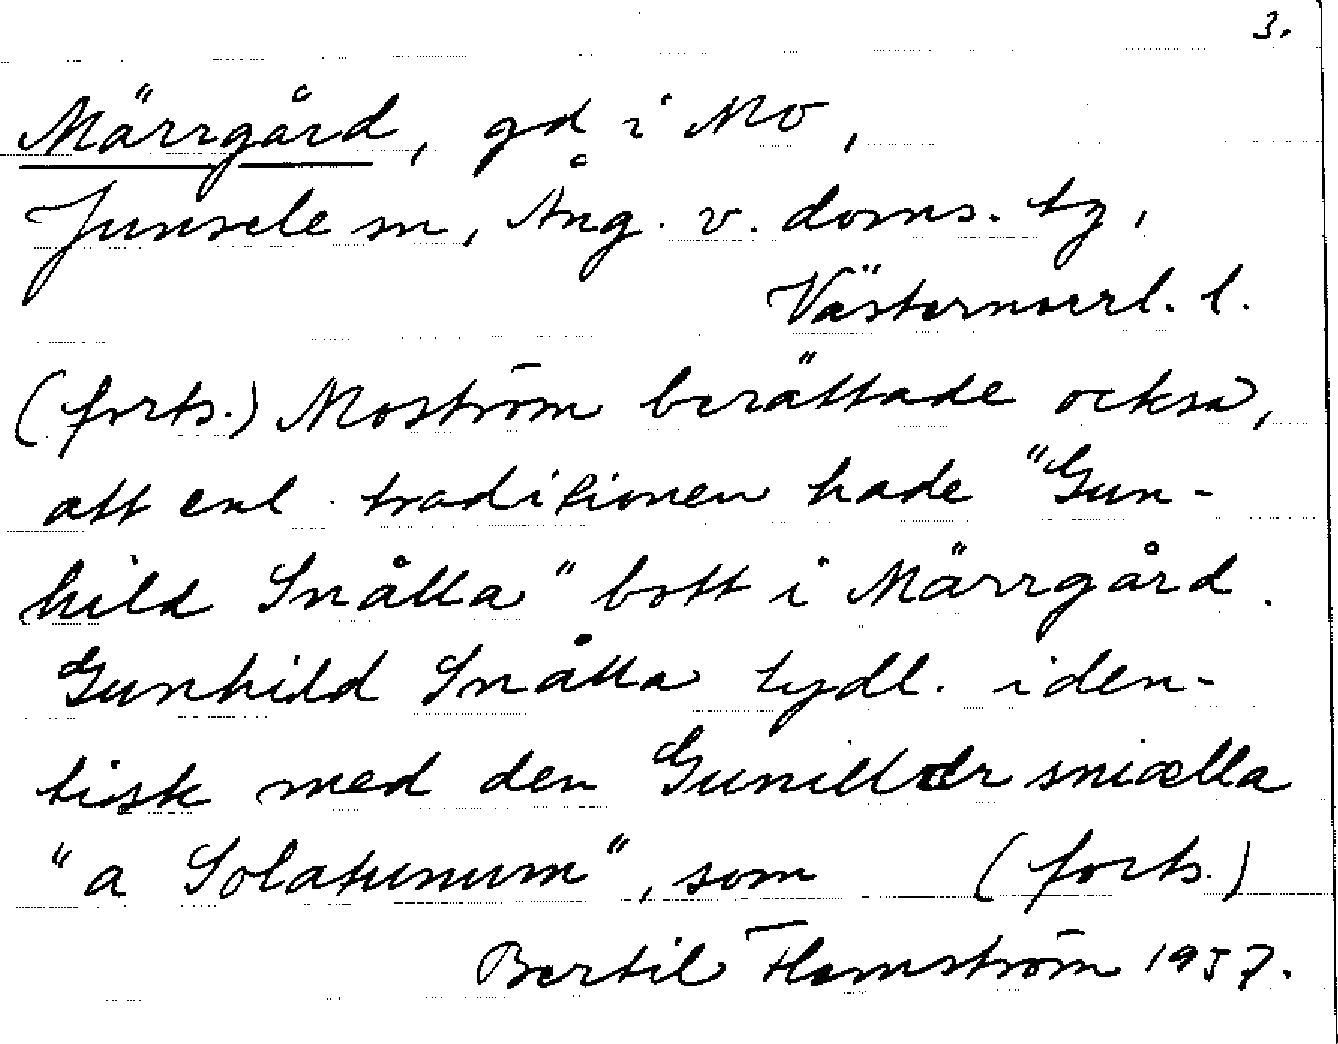 3.
Märrgård, gd i Mo,
Junsele sn, Ång. v. doms. tg,
Västernorrl. l.
(forts.) Moström berättade också,
att enl traditionen hade "Gun-
hild Snålla" bott i Märrgård.
Gunhild Snålla tydl. iden-
tisk med den Gunilldr sniælla
"a Solatunum", som (forts.)
Bertil Flemström 1957.